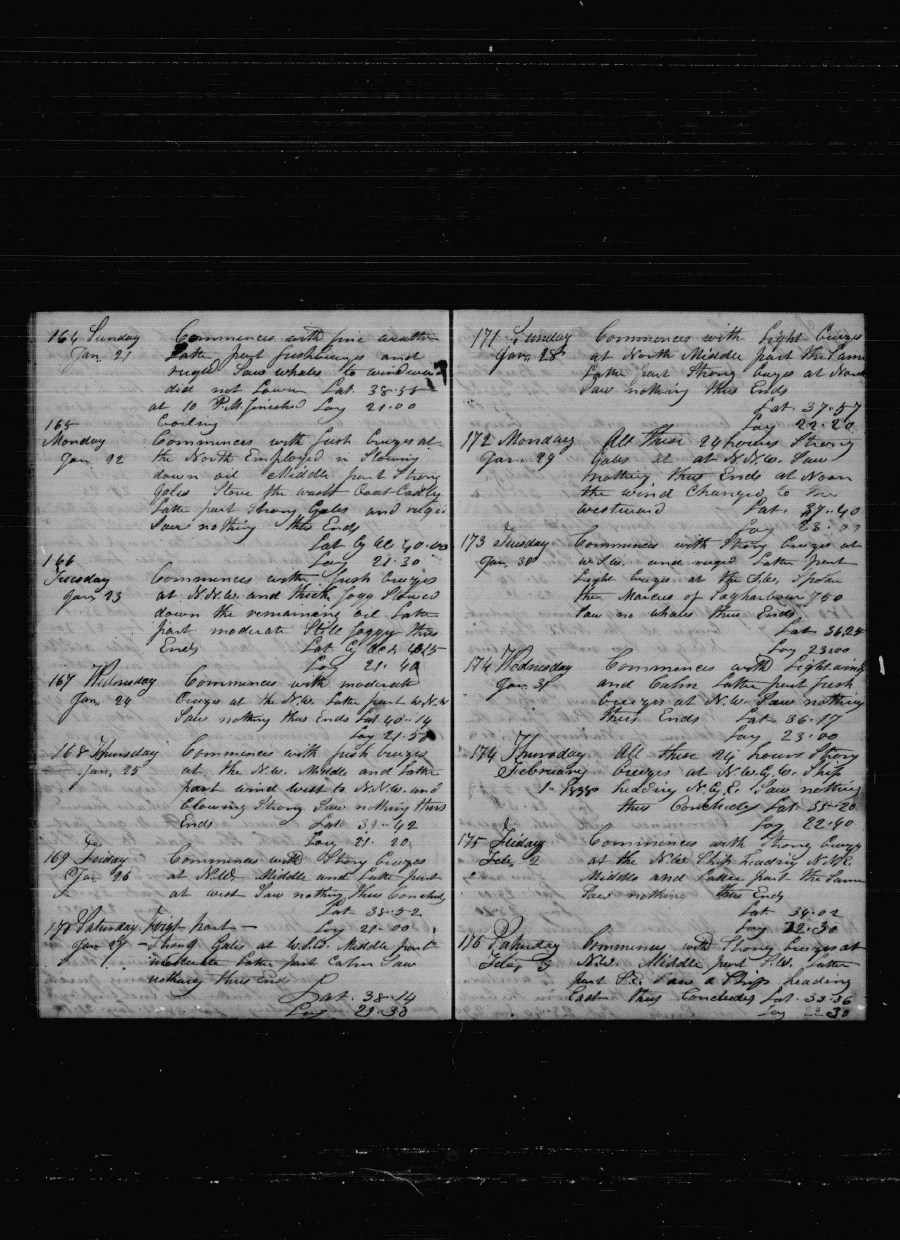 164 Sunday Commences with fine weather
Jan, 21 Latter part fresh breezes and
ruged Saw whales to windward
did not Lower Lat. 38-55
at 10 P.M finished Log 21.00
165 boiling
Monday Commences with fresh breezes at
Jan, 22 the North Employed in Stowing
down oil Middle part Strong
Gales Stove the waist Boat Badley
Latter part Strong Gales and ruged
Saw nothing thus Ends
Lat By 40.00
166 Log 21.30
Tuesday Commences with fresh breezes
Jan, 23 at N.N.W. and thick fogg Stowed
down the remaining oil Latter
part moderate Still foggy thus
Ends Lat By 40.15
Log 21.40
167 Wednesday Commences with moderate
Jan, 24 breezes at the N.W. Latter part W.N.W
Saw nothing thus Ends Lat 40-14
Log 21.57
168 Thursday Commences with fresh breezes
Jan, 25 at the N.W. Middle and Latter
part wind west to N.N.W. and
blowing Strong Saw nothing thus
Ends Lat 39-42
Log 21.20
169 Friday Commences with Strong breezes
Jan 26 at N.W. Middle and Latter part
at west Saw nothing thus Concludes
Lat 38-52
170 Saturday Foirst part - Log 21.00
Jan 27 - Strong Gales at W.S.W. Middle part
moderate Latter part Calm Saw
nothing thus Ends
Lat. 38-14
Log 21-30
171 Sunday Commences with Light breezes
Jan, 28 at North Middle part the Same
Latter part Strong breezes at North
Saw nothing thus Ends
Lat. 37-57
Log 22-20
172 Monday All these 24 hours Strong
Jan, 29 Gales at at N.N.W. Saw
nothing thus Ends at Noon
the wind Changed to the
westward Lat. 37-40
Log 23.00
173 Tuesday Commences with Strong breezes at
Jan, 30 W.S.W. and ruged Latter part
Light breezes at the S.W. Spoke
the Marcus of Sagharbour 750
Saw no whales thus Ends
Lat 36.25
Log 23.00
174 Wednesday Commences with Light winds
Jan. 31 and Calm Latter part fresh
breezes at N.W. Saw nothing
thus Ends Lat 36-17
Log 23-00
174 Thursday All these 24 hours Strong
February breezes at N.W. Ship
1st 1838 heading Saw nothing
thus Concludes Lat 35-20
Log 22.40
175 Friday Commences with Strong breezes
Feb, 2 at the N.W Ship heading N.N.E.
Middle and Latter part the Same
Saw nothing thus Ends
Lat 34-02
Log 22.30
176 Saturday Commences with Strong breezes at
Feb, 3 N.W. Middle part S.W. Latter
part Saw a Ship heading
East thus Concludes Lat 33-36
Log 22.30